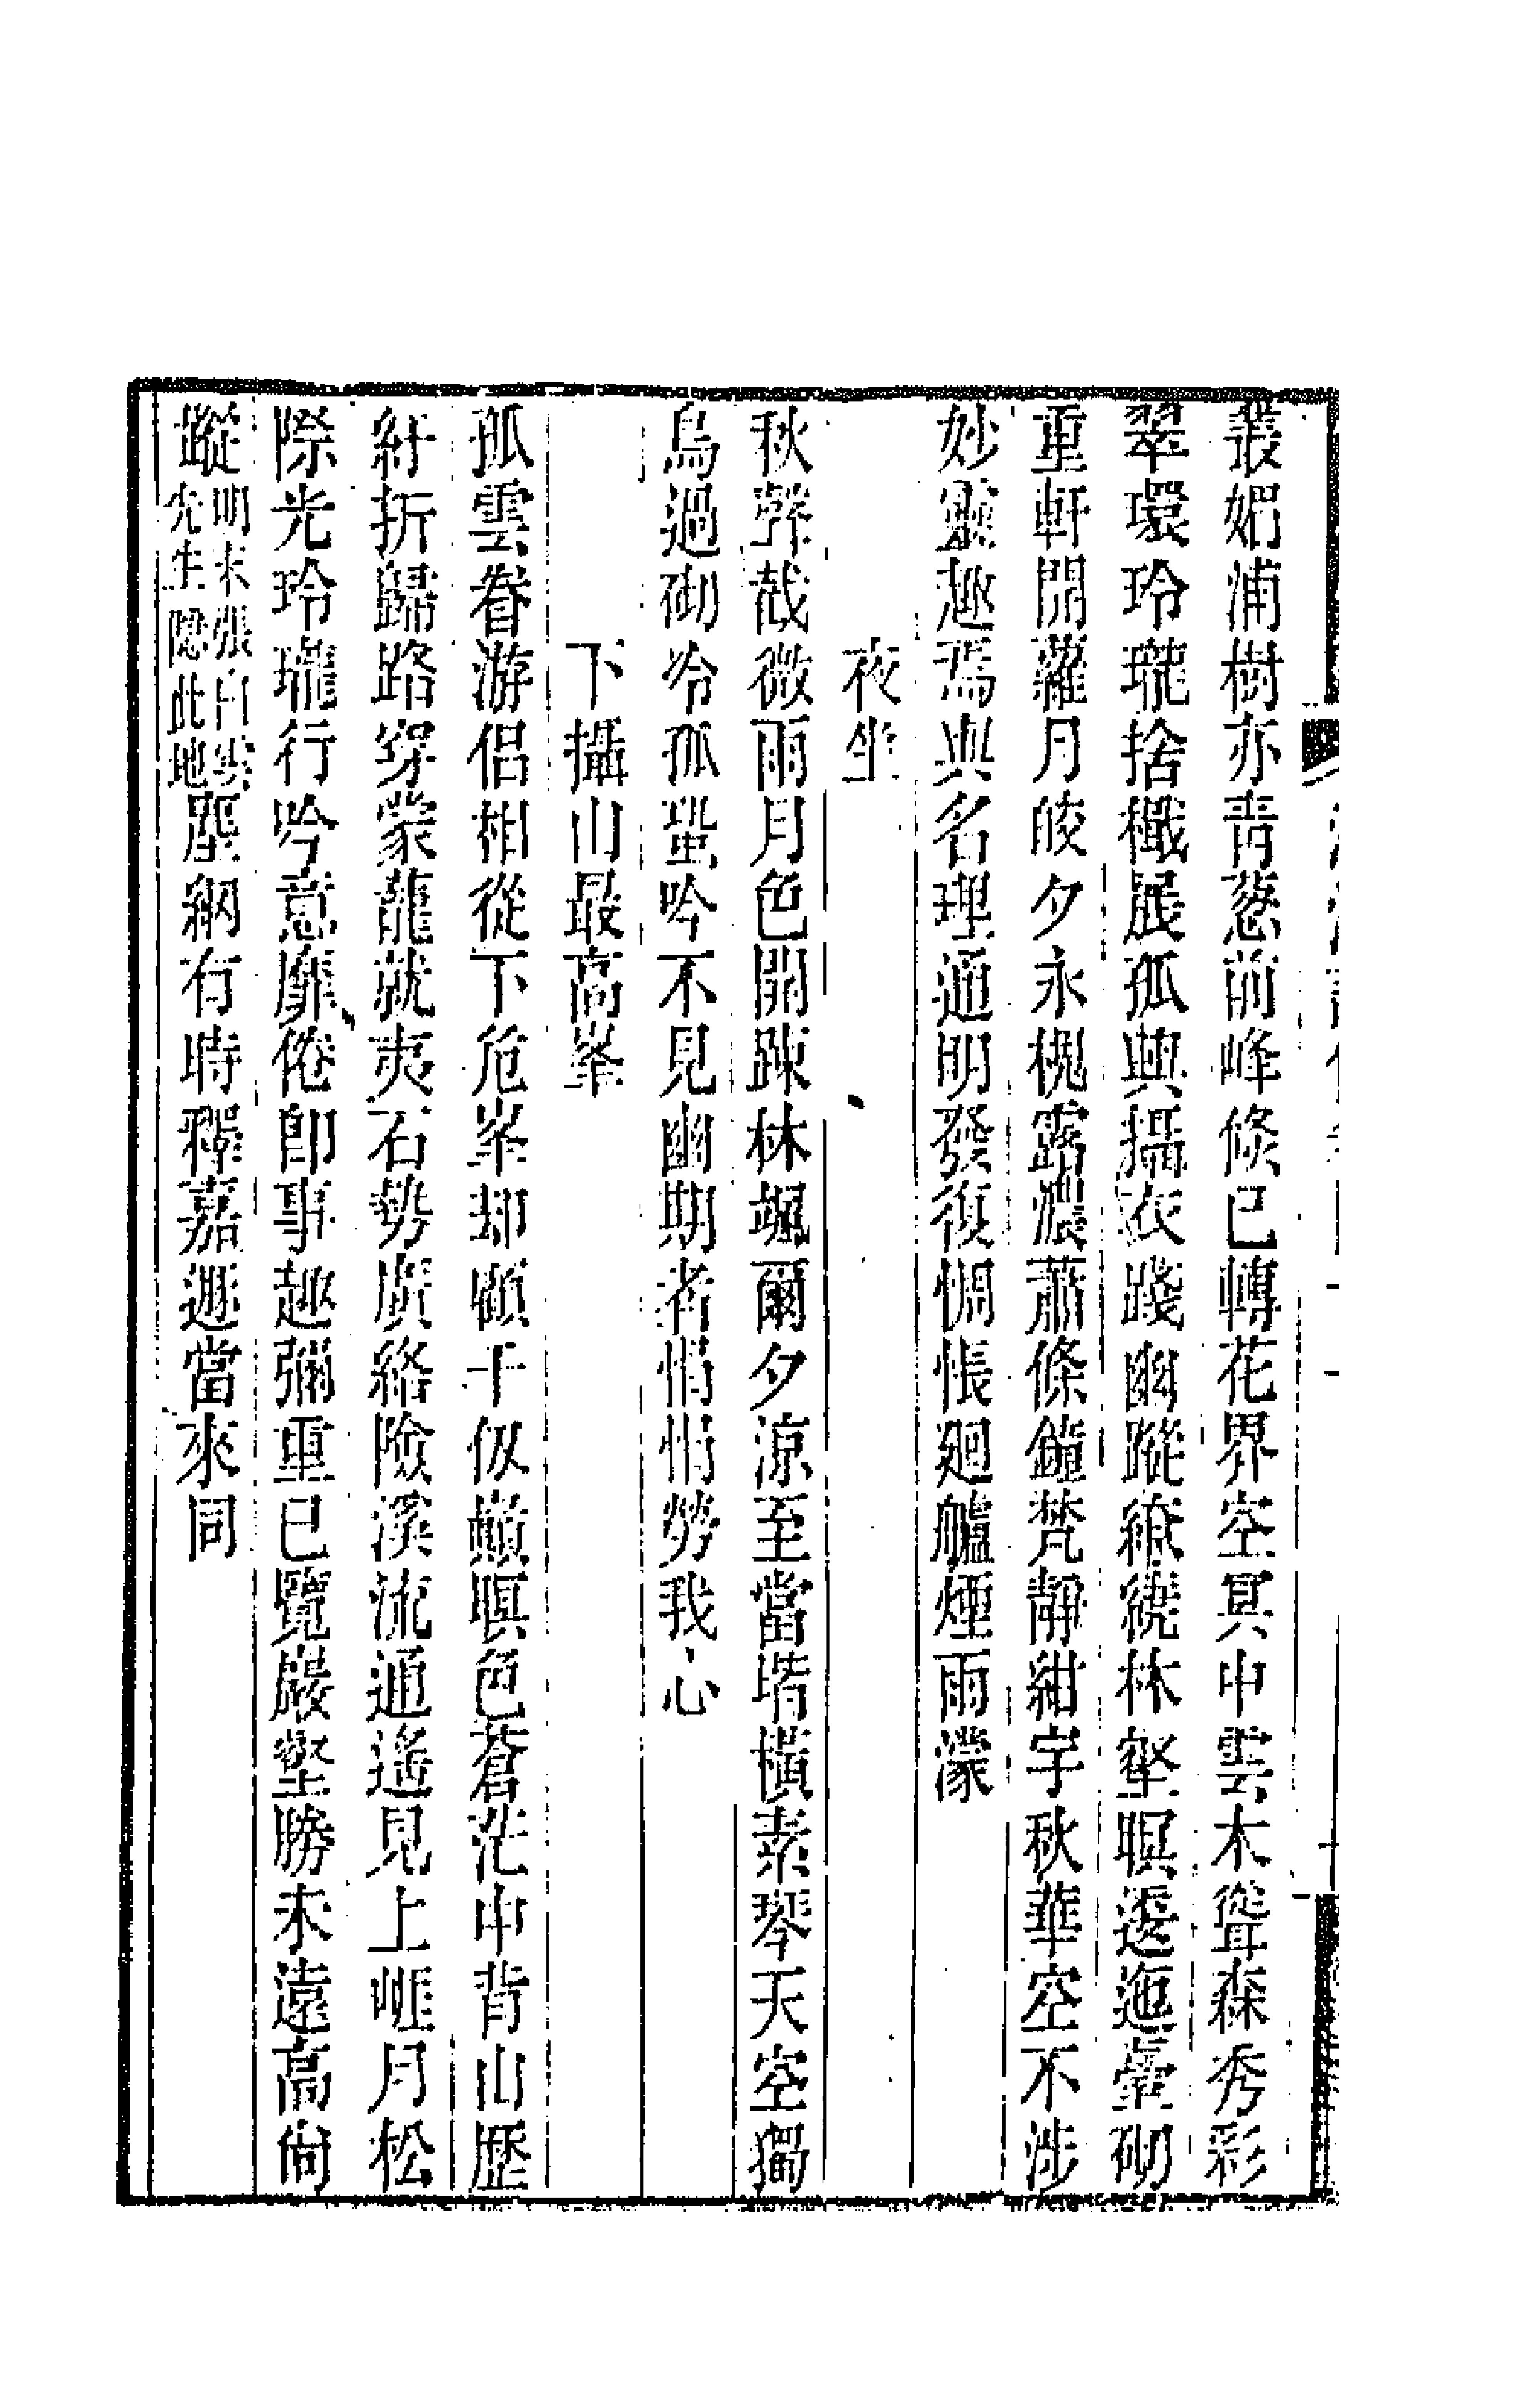 叢媚浦樹亦靑葱前峰倐已轉花界空冥中雲木聳森秀彩
翠環玲瓏捨檝展孤興攝衣踐幽蹤繚繞林壑暝逶迤臺砌
重軒開蘿月皎夕永槐露濃蕭條鐘梵靜紺宇秋華空不涉
妙靈趣焉與名理通明發復惆悵廻艫煙雨濛
夜坐
秋聲戢微雨月色開疎林颯爾夕涼至當堦橫素琴天空獨
鳥過砌冷孤蛩吟不見幽期者悁悁勞我心
下攝山最高峯
孤雲眷游侶相從下危峯却顧千仭巔暝色蒼茫中背山歷
紆折歸路穿蒙蘢就夷石勢廣緣險溪流通遙見上崕月松
際光玲瓏行吟意靡倦卽事趣彌重已覽巖壑勝未遠高尙
蹤明末張白雲先生隱此地塵網有時釋嘉遯當來同